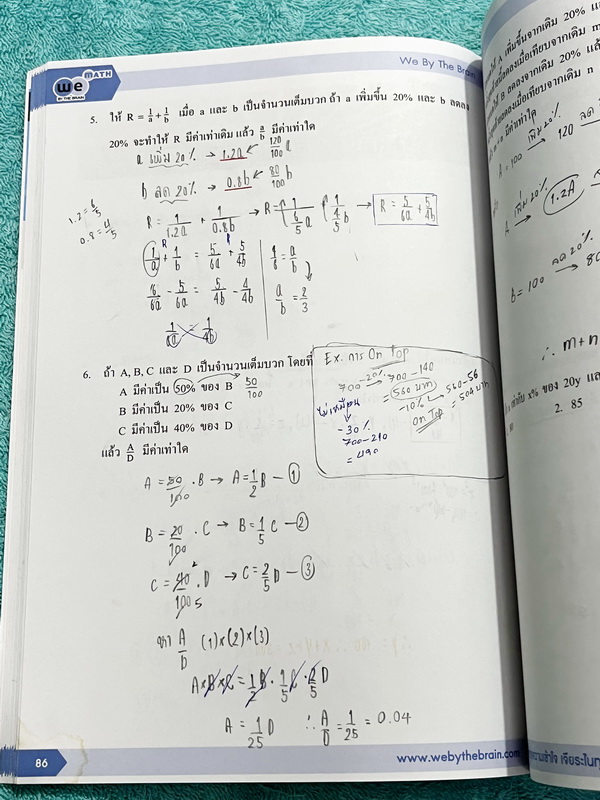 We By The Brain
MATH
We
BY THE BRAIN
5. ให้ R = 1/a + 1/b เมื่อ a และ b เป็นจำนวนเต็มบวก ถ้า a เพิ่มขึ้น 20% และ b ลดลง
20% จะทำให้ R มีค่าเท่าเดิม แล้ว a/b มีค่าเท่าใด
a เพิ่ม 20% → 1.2a ← 120/100 a
b ลด 20% → 0.8b ← 80/100 b
1.2 = 6/5
0.8 = 4/5
R = 1/1.2a + 1/0.8b → R = 1/(6/5 a) + 1/(4/5 b) → R = 5/6a + 5/4b
1/a + 1/b = 5/6a + 5/4b
6/6a - 5/6a = 5/4b - 4/4b
1/6a = 1/4b
a/b = 2/3
6. ถ้า A, B, C และ D เป็นจำนวนเต็มบวก โดยที่
A มีค่าเป็น 50% ของ B 50/100
B มีค่าเป็น 20% ของ C
C มีค่าเป็น 40% ของ D
แล้ว A/D มีค่าเท่าใด
Ex. การ On Top
700 -20% → 700-140
= 560 บาท
-10% → 560-56
= 504 บาท
on Top
ไม่เหมือน
-30%
700-210
= 490
A = 50/100 . B → A = 1/2 B - 1
B = 20/100 . C → B = 1/5 C - 2
C = 40/100 . D → C = 2/5 D - 3
หา A/D (1)×(2)×(3)
A×B×C = 1/2 B . 1/5 C . 2/5 D
A = 1/25 D ∴ A/D = 1/25 = 0.04
86
www.webythebrain.com
A เพิ่มขึ้นจากเดิม 20%
ลดลงจากเดิม 20%
A = 100 เพิ่ม 20% → 120
A เพิ่ม 20% → 1.2A
b = 100 ลด 20% → 80
∴ m+n
x% ของ 20y
2. 85